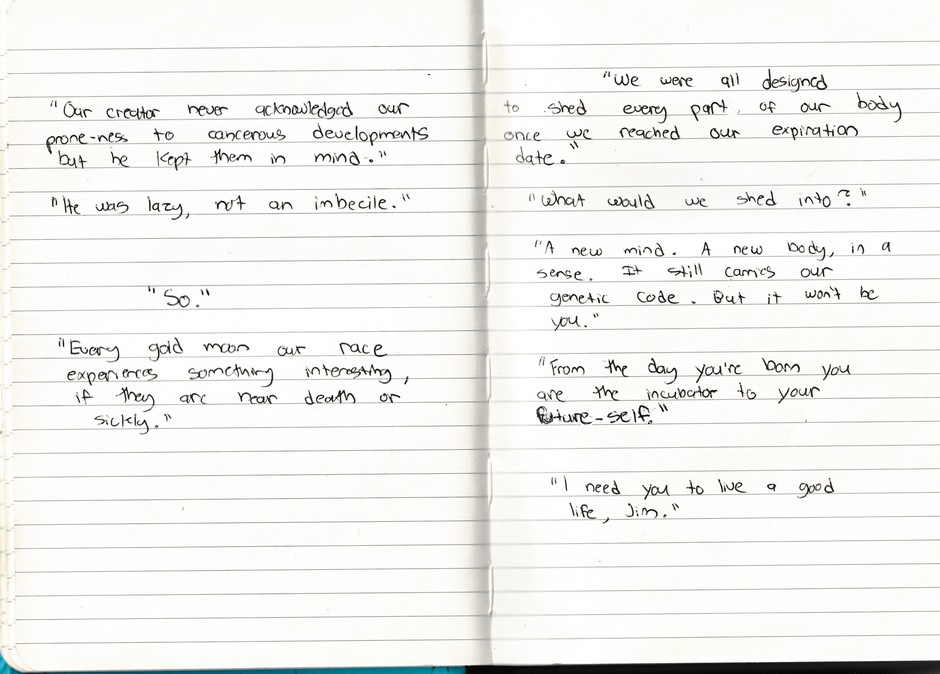 "Our creator never acknowledged our
prone-ness to cancerous developments
but he kept them in mind."
"He was lazy, not an imbecile."
"So."
"Every gold moon our race
experiences something interesting,
if they are near death or
sickly."
"We were all designed
to shed every part of our body
once we reached our expiration
date."
"What would we shed into?"
"A new mind. A new body, in a
sense. It still carries our
genetic code. But it won't be
you."
"From the day you're born you
are the incubator to your
future-self."
"I need you to live a good
life, Jim."